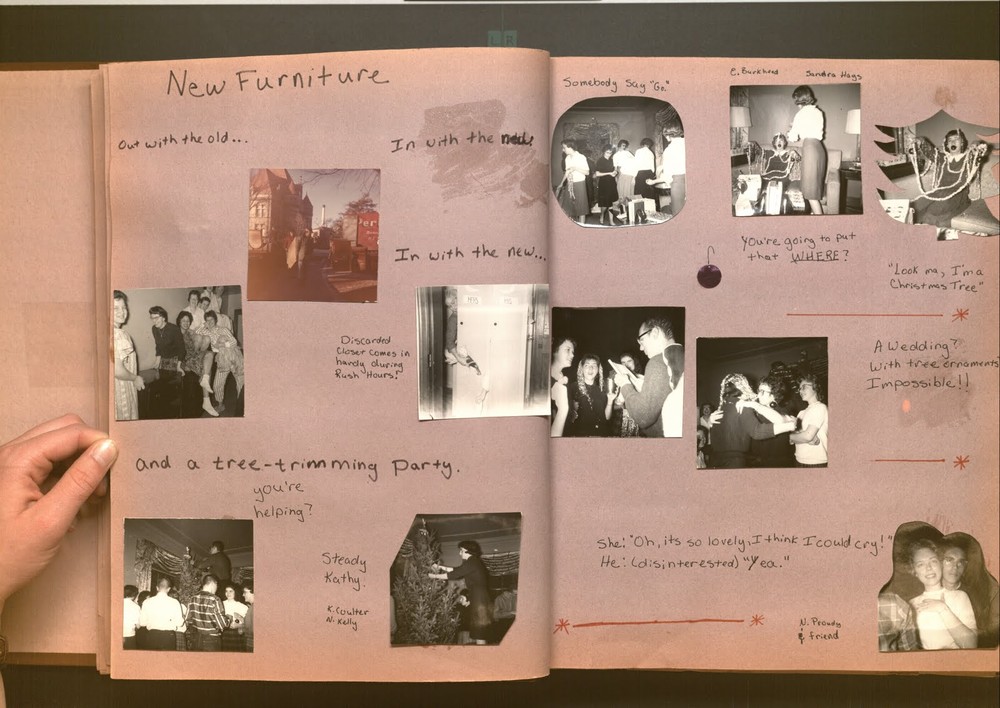 New Furniture
Out with the old...
In with the new!
In with the new...
Discarded
Closer comes in
handy during
Rush Hours!
and a tree-trimming party.
you're
helping?
Steady
Kathy.
K. Coulter
N. Kelly
Somebody Say "Go"
E. Burkhead
Sandra Hays
You're going to put
that WHERE?
"Look ma, I'm a
Christmas Tree"
A Wedding?
With tree ornaments
Impossible!!
She: "Oh, its so lovely, I think I could cry!"
He: (disinterested) "Yea."
N. Proudy
& friend